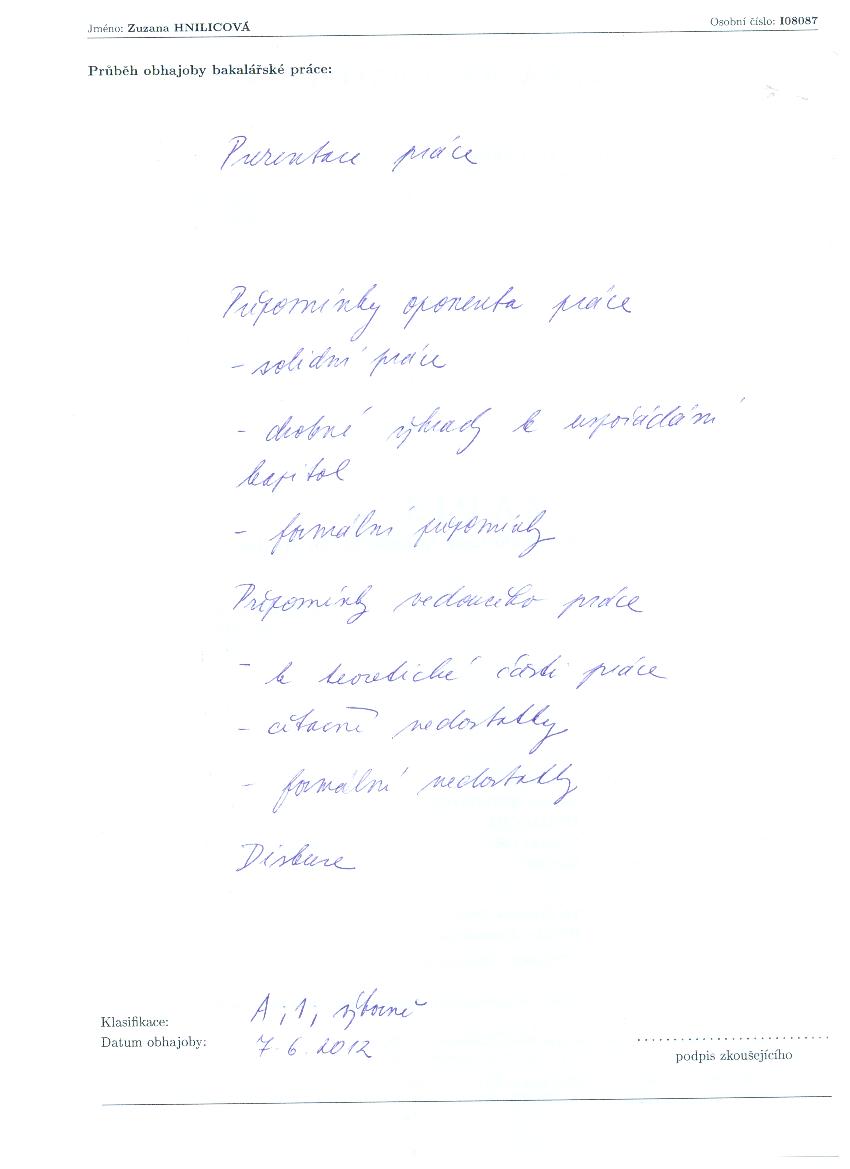 Jméno: Zuzana HNILICOVÁ Osobní číslo: I08087
Průběh obhajoby bakalářské práce:
Prezentace práce
Připomínky oponenta práce
- solidní práce
- drobné výhrady k uspořádání
kapitol
- formální připomínky
Připomínky vedoucího práce
- k teoretické části práce
- citační nedostatky
- formální nedostatky
Diskuse
Klasifikace: A ; 1 ; výborně
Datum obhajoby: 7. 6. 2012
podpis zkoušejícího